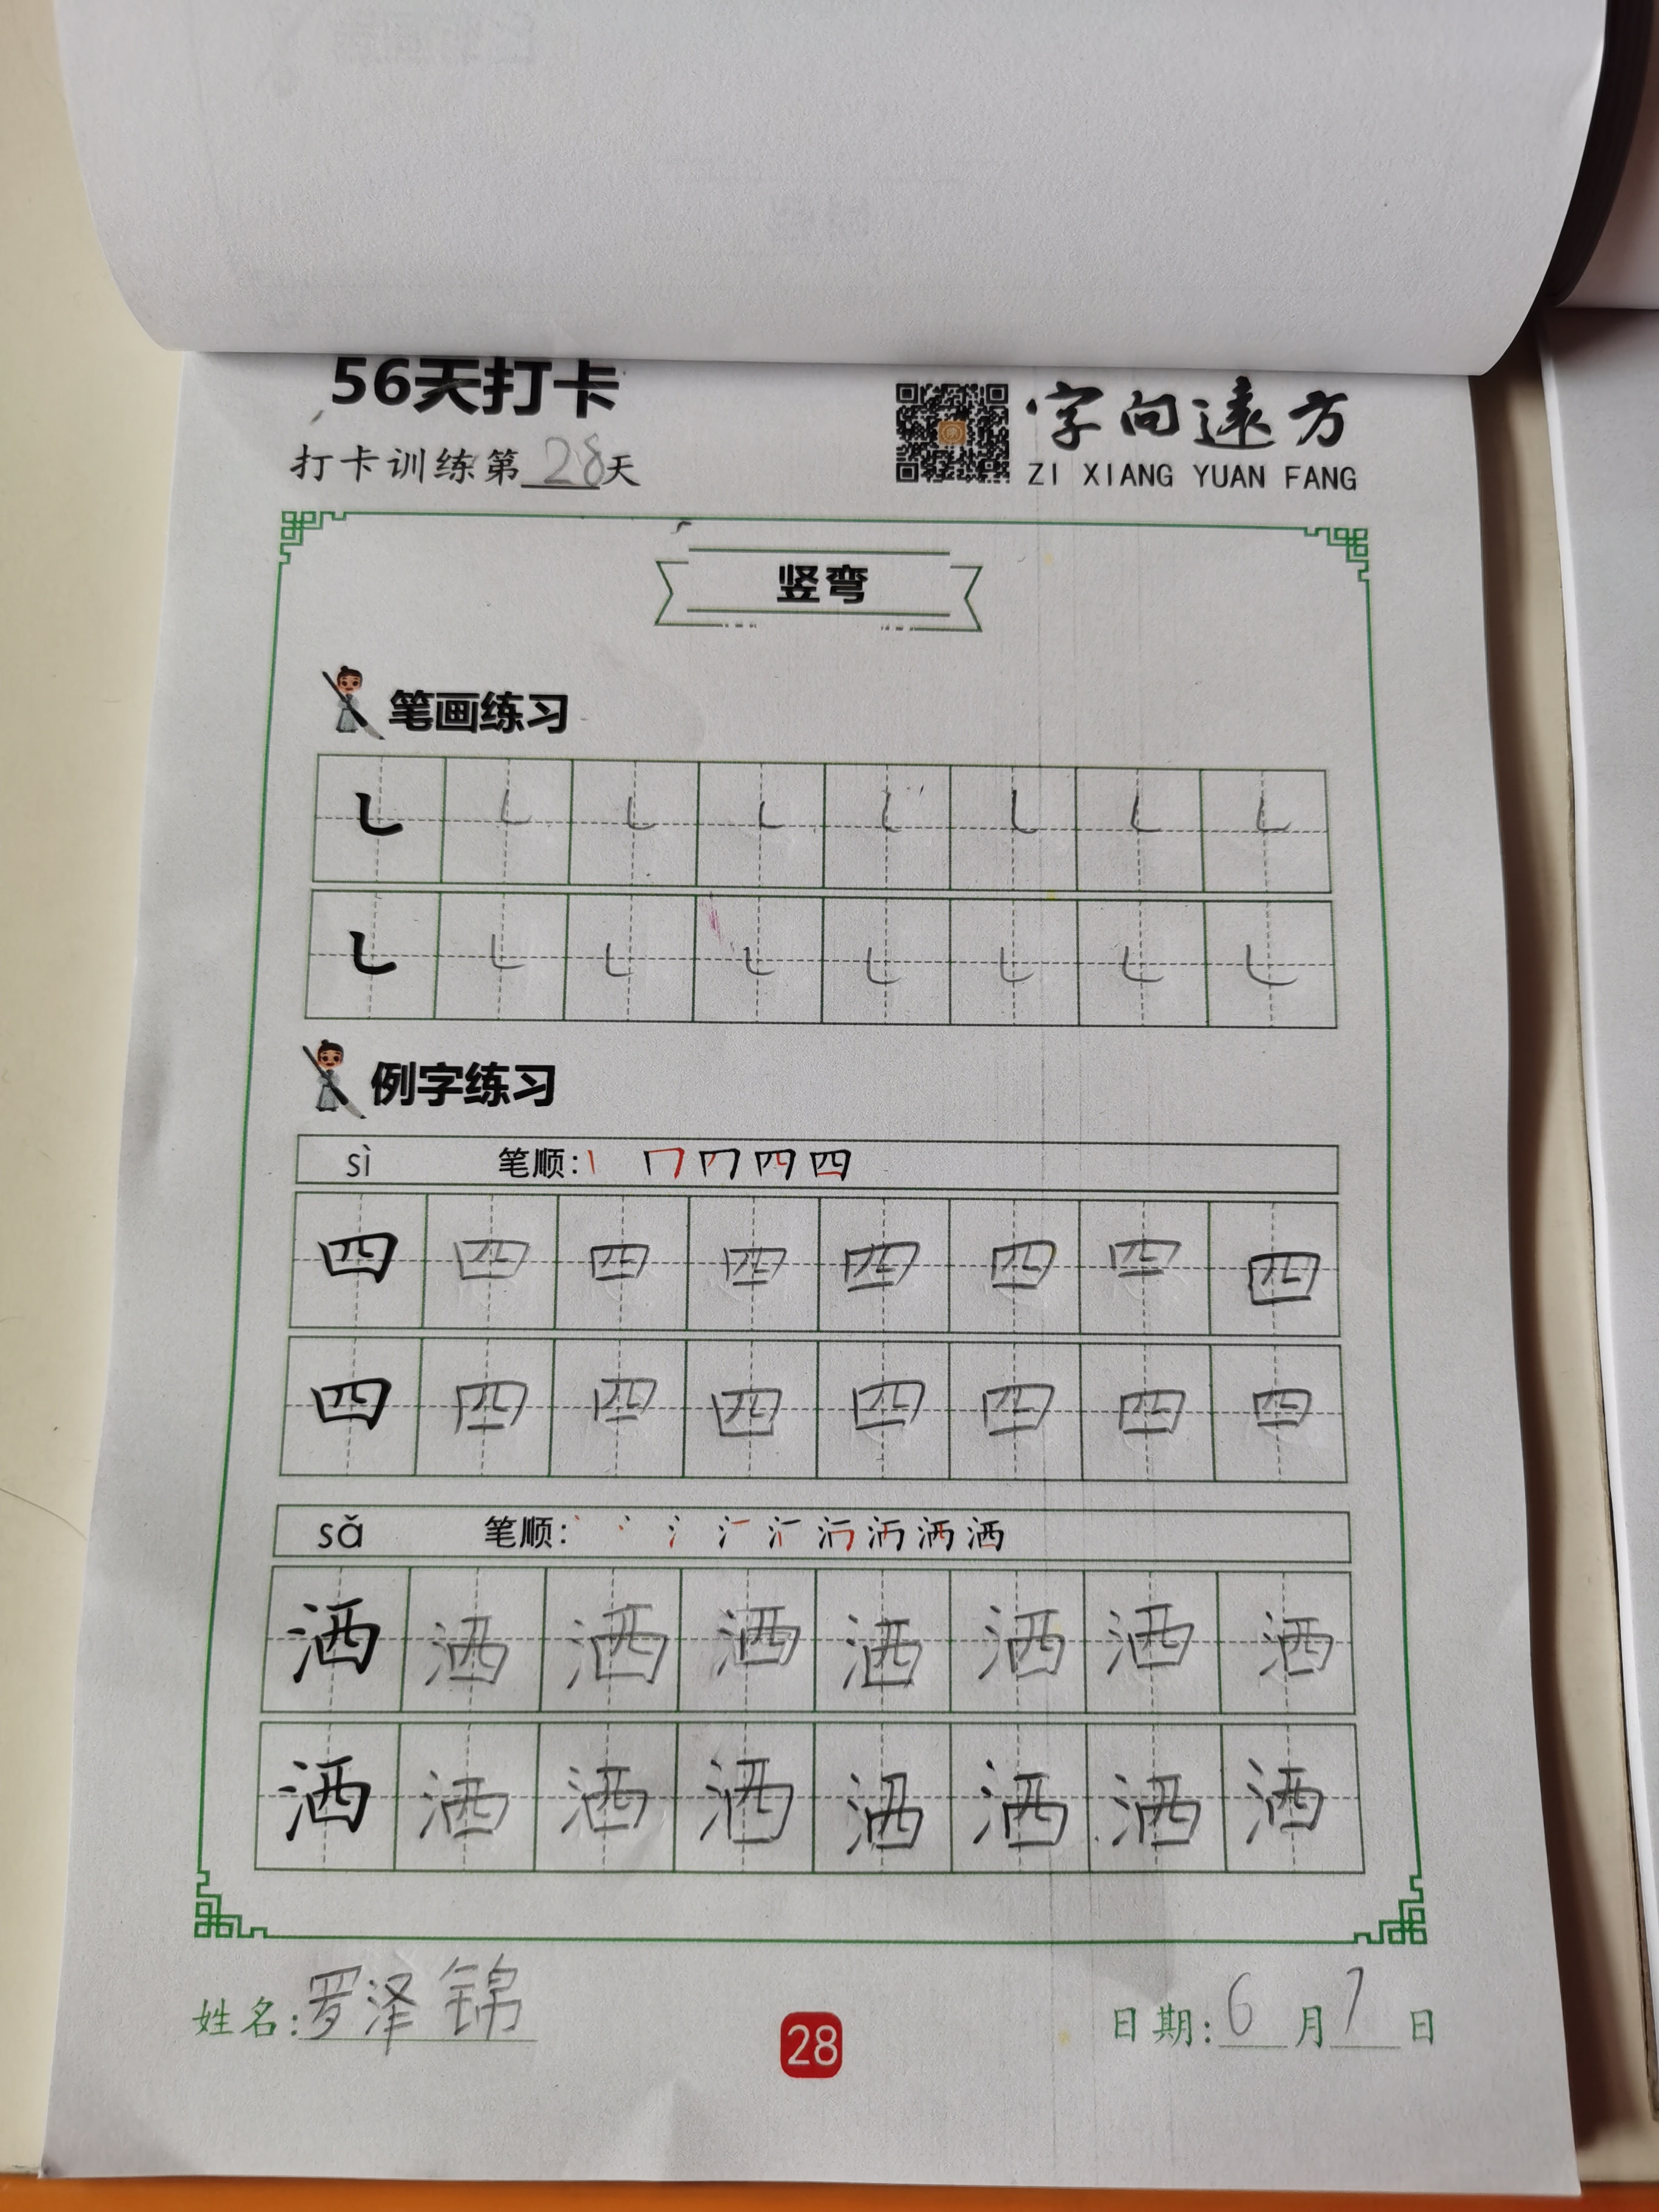 56天打卡
打卡训练第28天
字向远方
ZI XIANG YUAN FANG
竖弯
笔画练习
㇄ ㇄ ㇄ ㇄ ㇄ ㇄ ㇄ ㇄
㇄ ㇄ ㇄ ㇄ ㇄ ㇄ ㇄ ㇄
例字练习
sì 笔顺: 四
四 四 四 四 四 四 四 四
四 四 四 四 四 四 四 四
sǎ 笔顺: 洒
洒 洒 洒 洒 洒 洒 洒 洒
洒 洒 洒 洒 洒 洒 洒 洒
姓名:罗泽锦
28
日期:6月7日